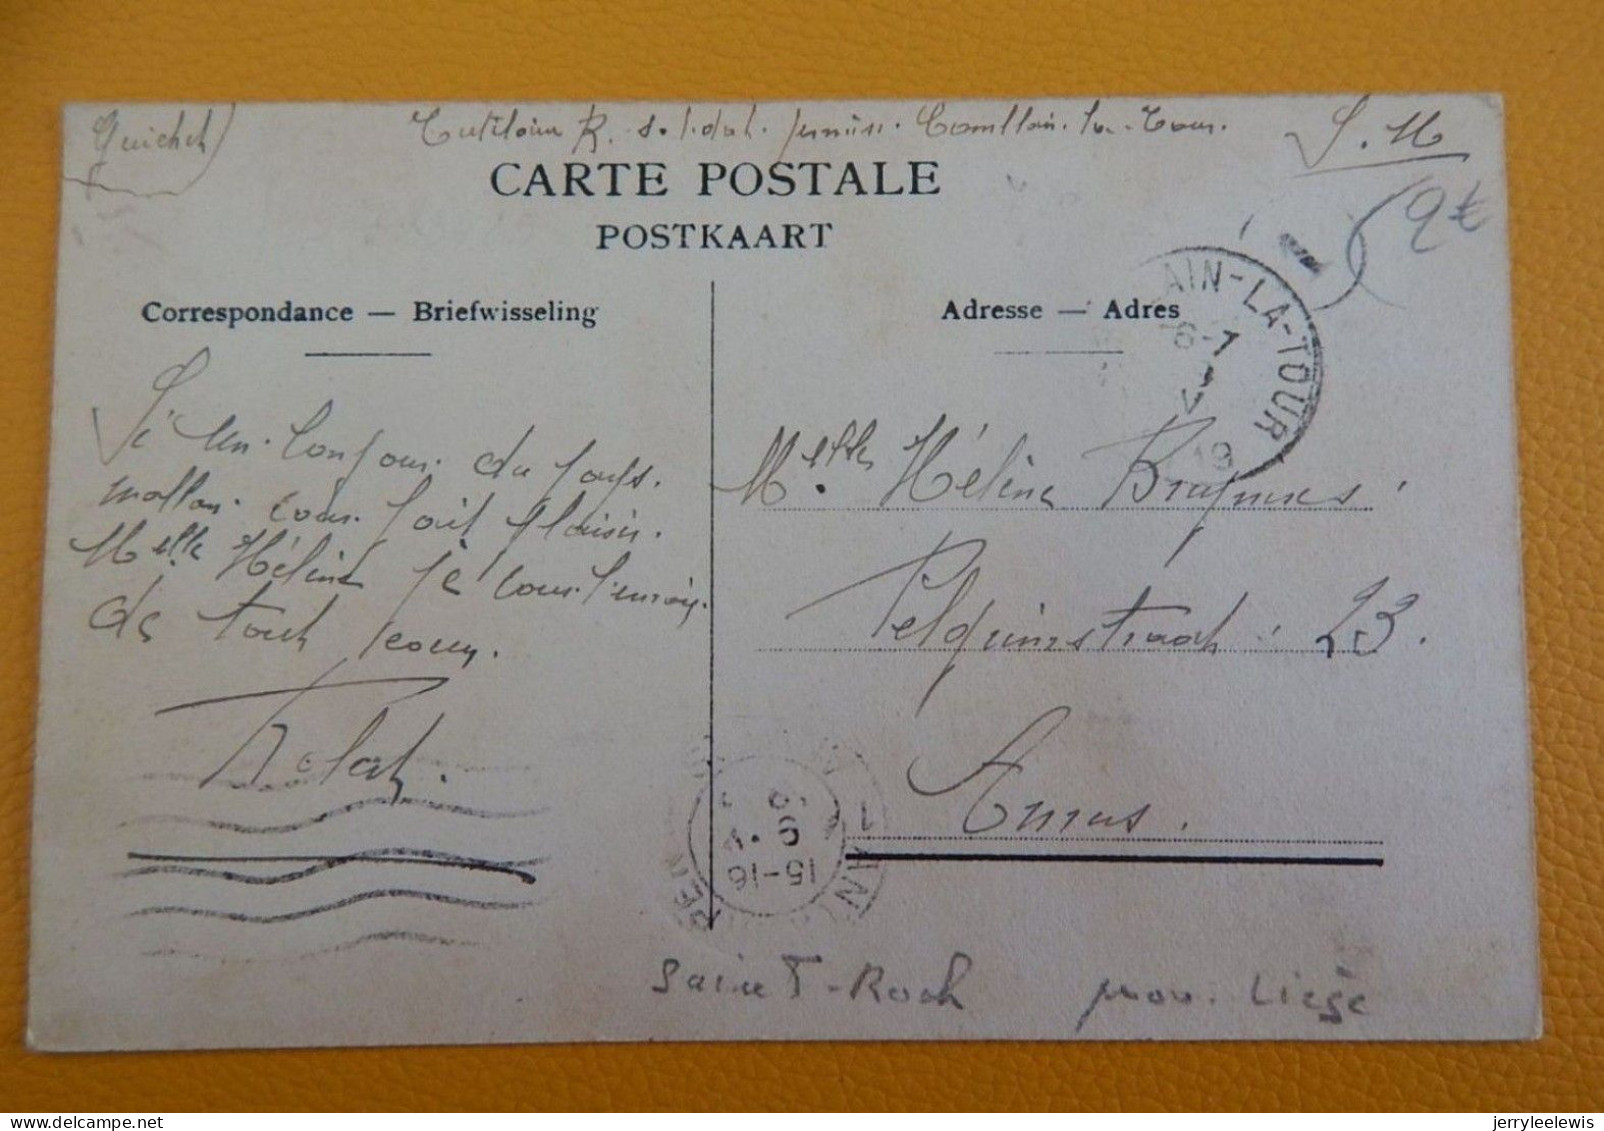 Guichet
R. soldat. Comblain-la-Tour.
S. M
CARTE POSTALE
POSTKAART
9 €
Correspondance — Briefwisseling
Adresse — Adres
AIN-LA-TOUR
6-7
V
19
Si un bonjour du pays.
wallon. vous fait plaisir.
Melle Hélène je vous l'envoie.
de tout coeur.
Melle Hélène
Pelgrimstraat. 23.
Anvers.
1 ANT PEN
15-16
Saint-Roch prov. Liège
delcampe.net
jerryleelewis